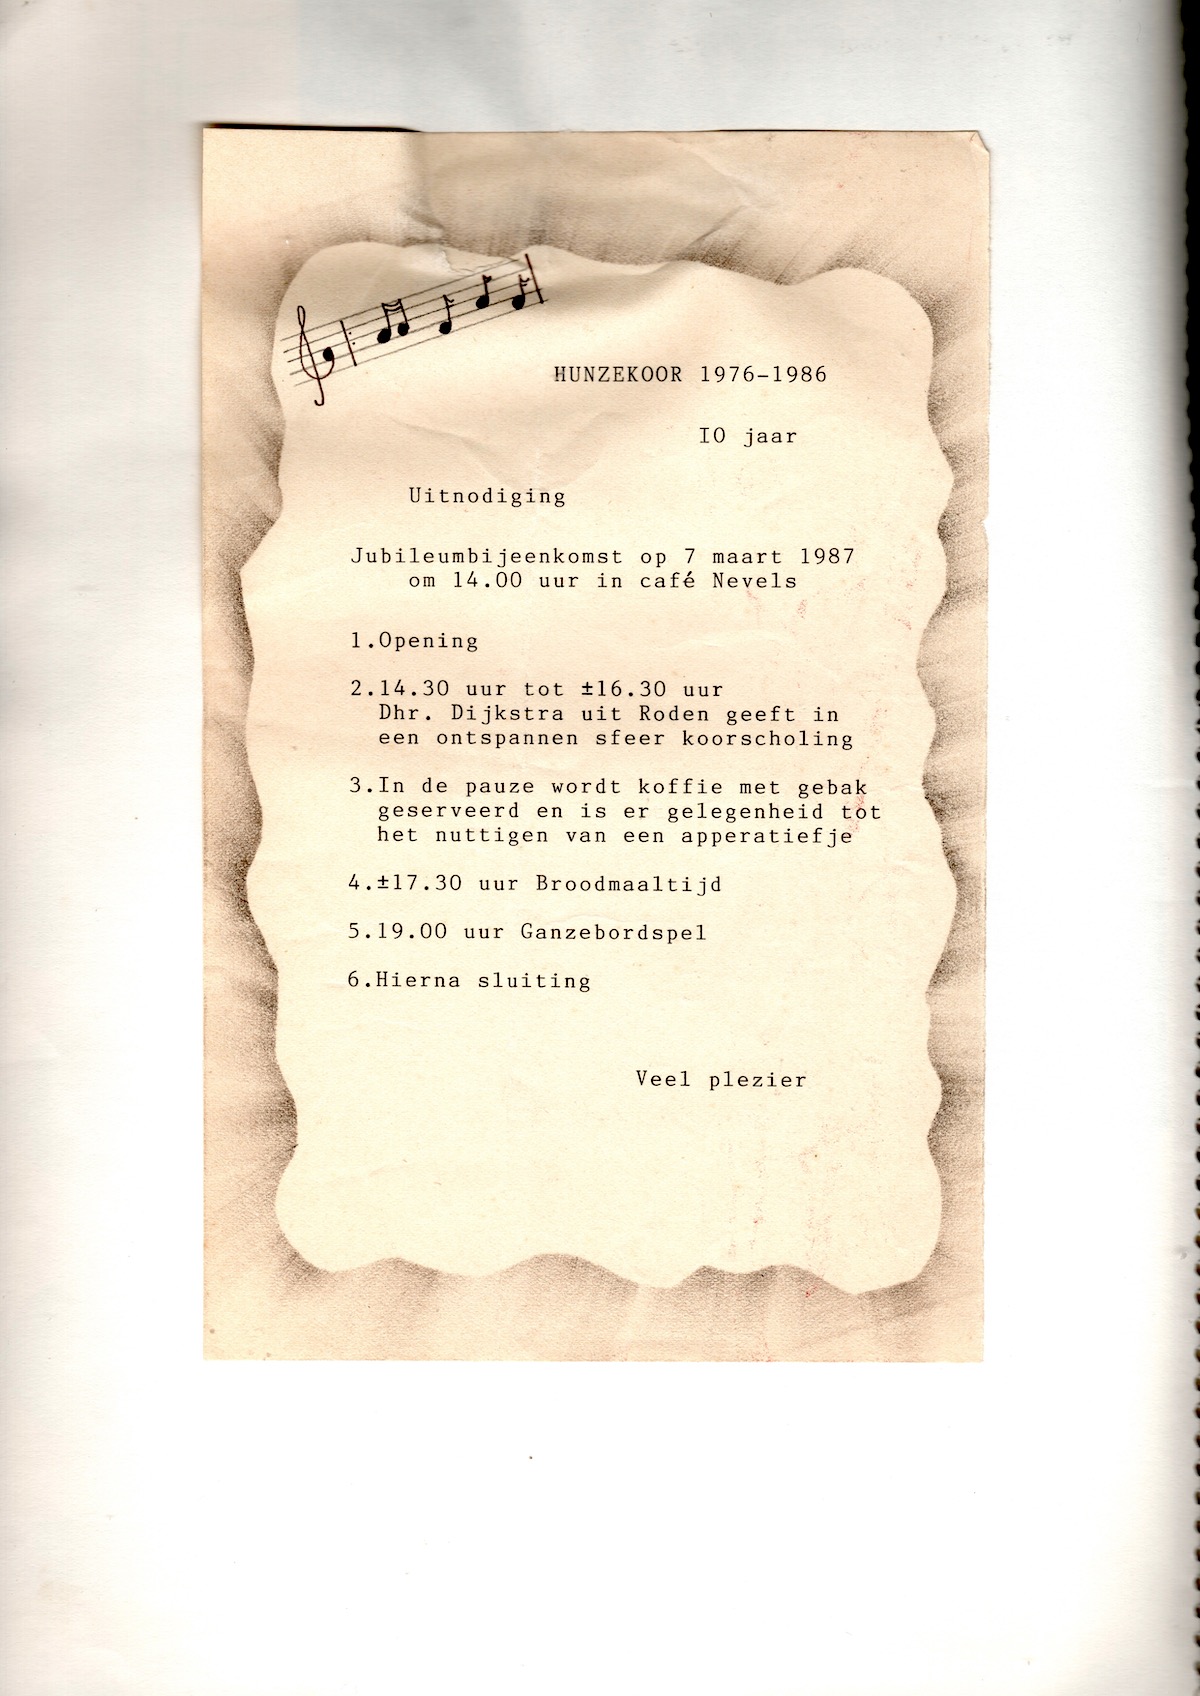 HUNZEKOOR 1976-1986
IO jaar
Uitnodiging
Jubileumbijeenkomst op 7 maart 1987
om 14.00 uur in café Nevels
1.Opening
2.14.30 uur tot ±16.30 uur
Dhr. Dijkstra uit Roden geeft in
een ontspannen sfeer koorscholing
3.In de pauze wordt koffie met gebak
geserveerd en is er gelegenheid tot
het nuttigen van een apperatiefje
4.±17.30 uur Broodmaaltijd
5.19.00 uur Ganzebordspel
6.Hierna sluiting
Veel plezier